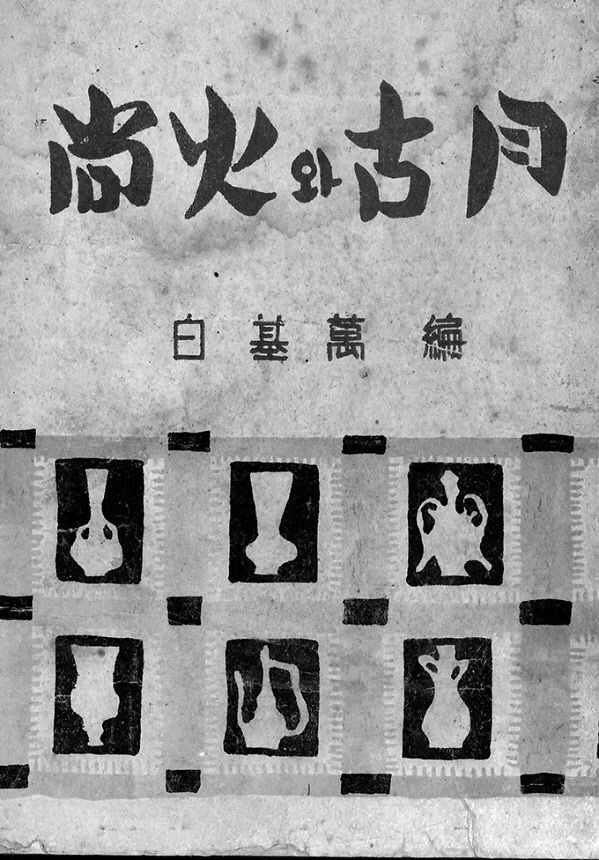 尙火와古月
白基萬 編